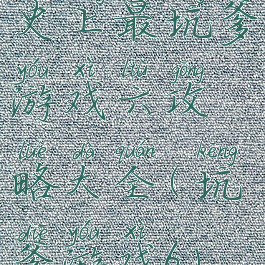 史上最坑爹
yóu xì liù gōng
游戏六攻
lüè dà quán kēng
略大全(坑
diē yóu xì
爹游戏6)